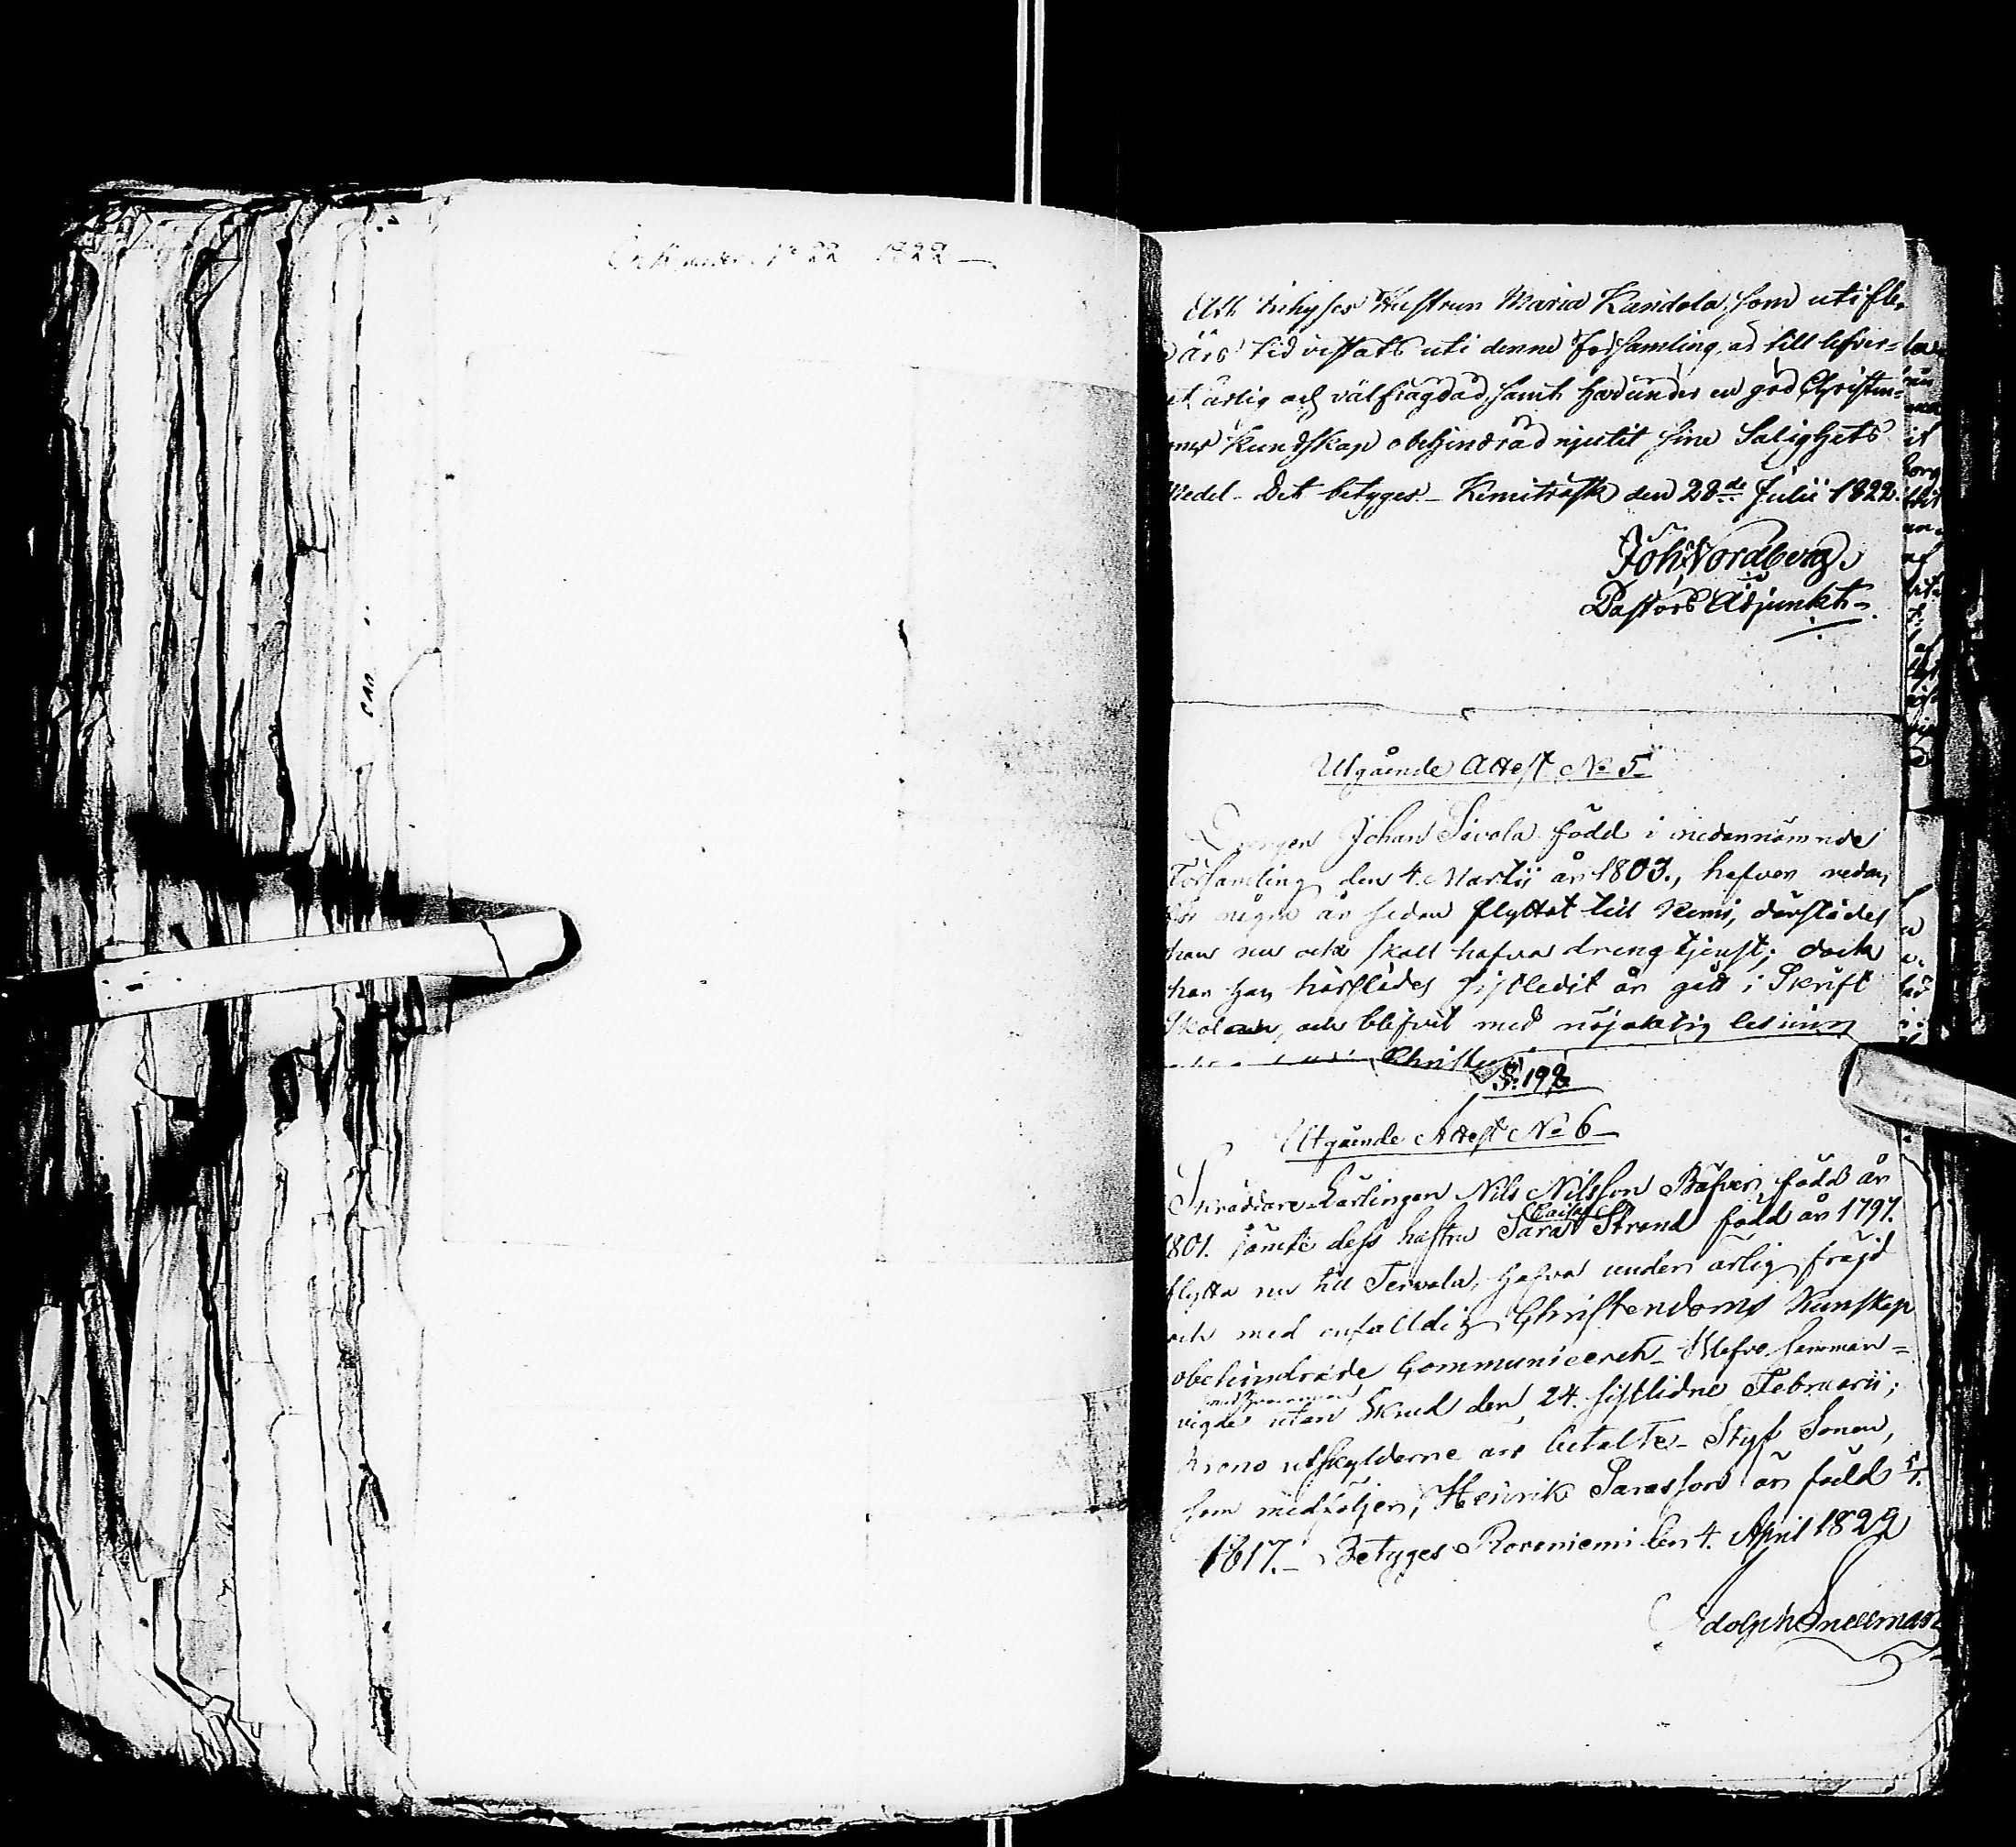 1822 1822 —
Att Inhyses Hustrun Maria Kandola, som uti fle-
års tid vistats uti denne Församling, är till lefver-
et ärlig och välfrägdad, samt har under en god Christen-
oms Kundskap obehindrad njutit sine Salighets
Medel. Det betyges. Kemiträsk den 28de Julii 1822.
Joh. Nordberg
Pastors Adjunkt
Utgående Attest No 5
Drengen Johan Sivola född i nedannämnde
Församling den 4. Martii år 1803., hafver redan
för några år sedan flyttat till Kemi, därstädes
han nu och skall hafva drengtjenst; dock
har han härstädes sistledit år gått i Skrift
Skolan, och blifvit med nöjaktig
Christen
S: 198
Utgående Attest No 6
Inrådiare Kärlingen Nils Nilsson Bäfver, född år
1801. jämte dess hustru Sara Caisa Strand född år 1797.
flytta nu till Tervola, hafva under ärlig fräjd
och med enfalldig Christendoms Kunskap
obehindrade Communicerat. Blefvo samman-
vigde utan Skrud den 24. sistlidne Februarii;
Krono utskylderne are betalte. Styf Sonen,
som medföljer, Henrik Sarasson är född
1817. Betyges Rovaniemi den 4. April 1822
Adolph Snellman